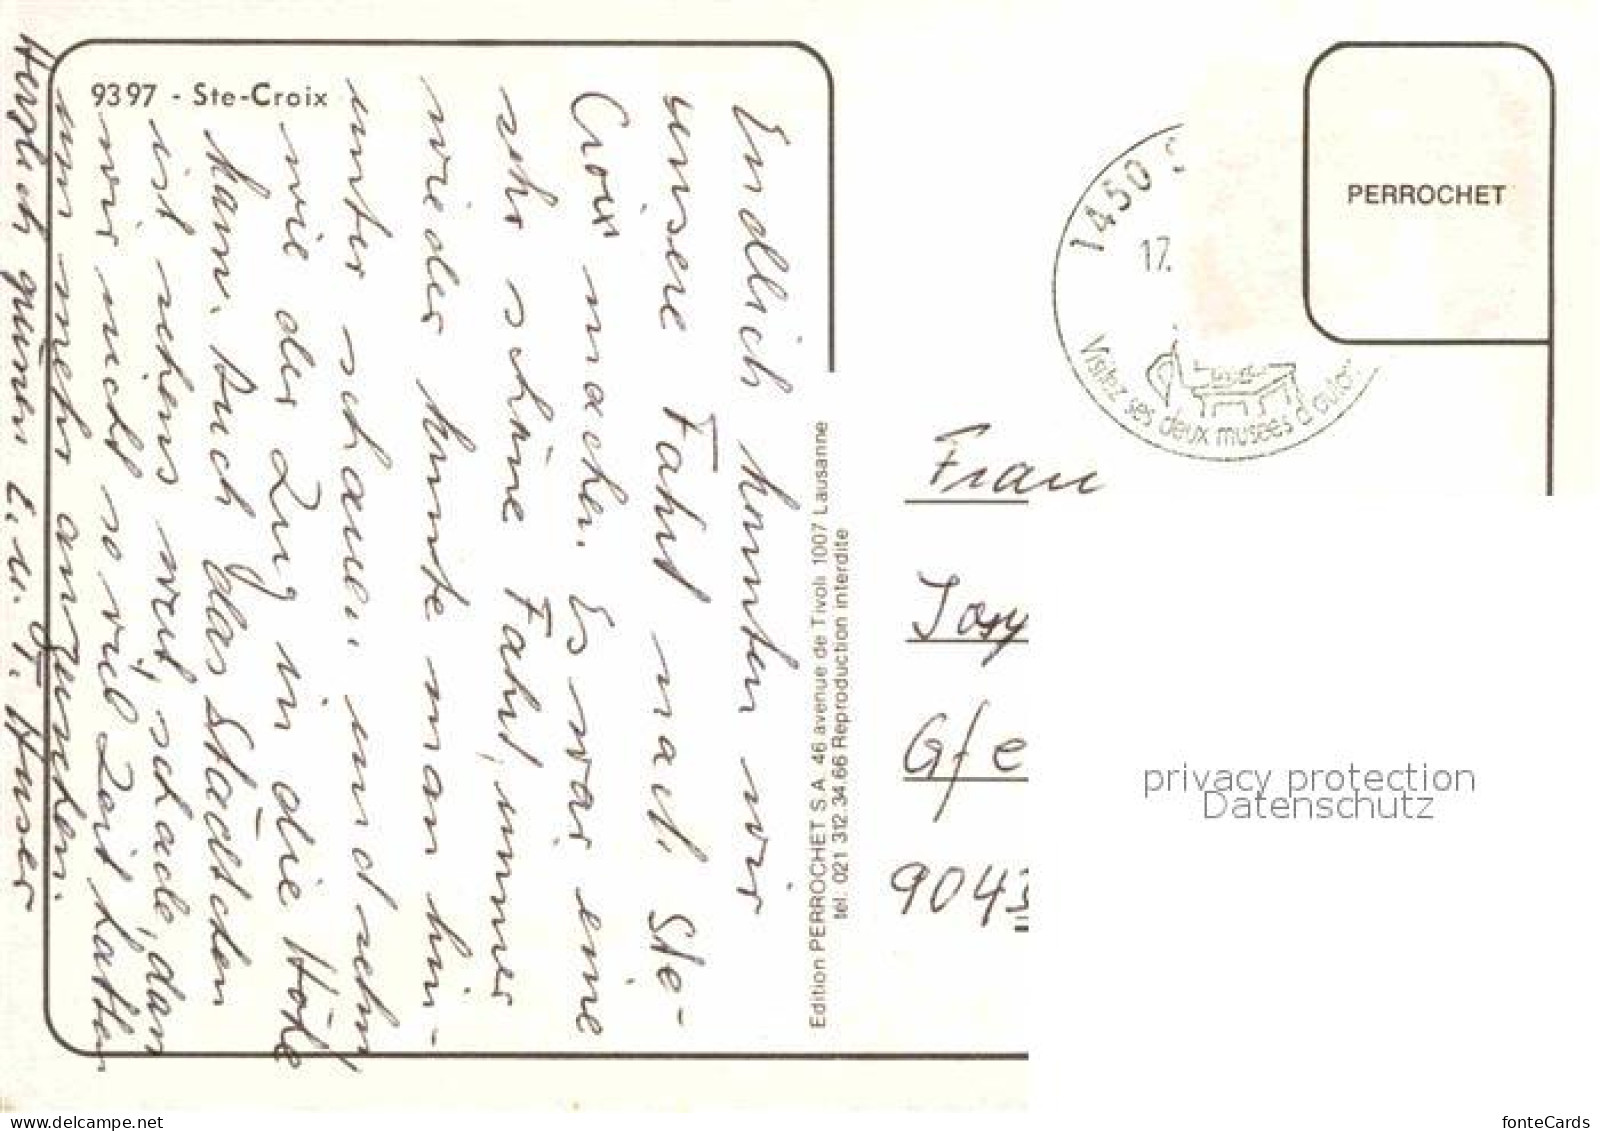 9397 - Ste-Croix
Endlich konnten wir
unsere Fahrt nach Ste-
Croix machen. Es war eine
sehr schöne Fahrt, immer
wieder konnte man hin-
unter schauen und sehn
wie der Zug in die Höhe
kam. Auch das Städtchen
ist sehens wert, schade, dass
wir nicht so viel Zeit hatten
um mehr anzuschauen.
Herzlich grüssen E. u. T. Huser
Edition PERROCHET S.A. 46 avenue de Tivoli 1007 Lausanne
tél. 021 312.34.66 Reproduction interdite
1450
17.
Visitez ses deux musées d'autom
PERROCHET
Frau
Josy
Gfe
9043
privacy protection
Datenschutz
www.delcampe.net
fonteCards